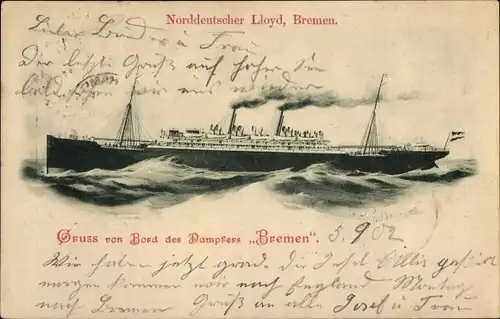 Norddeutscher Lloyd, Bremen.
Lieber Bruder u Frau
Der letzte Gruß auf hoher See
wir uns wieder
Gruss von Bord des Dampfers „Bremen“. 5.9.02
Wir haben jetzt grade die Insel passiert
morgen kommen wir nach England Montag
nach Bremen Gruß an alle Josef u Frau